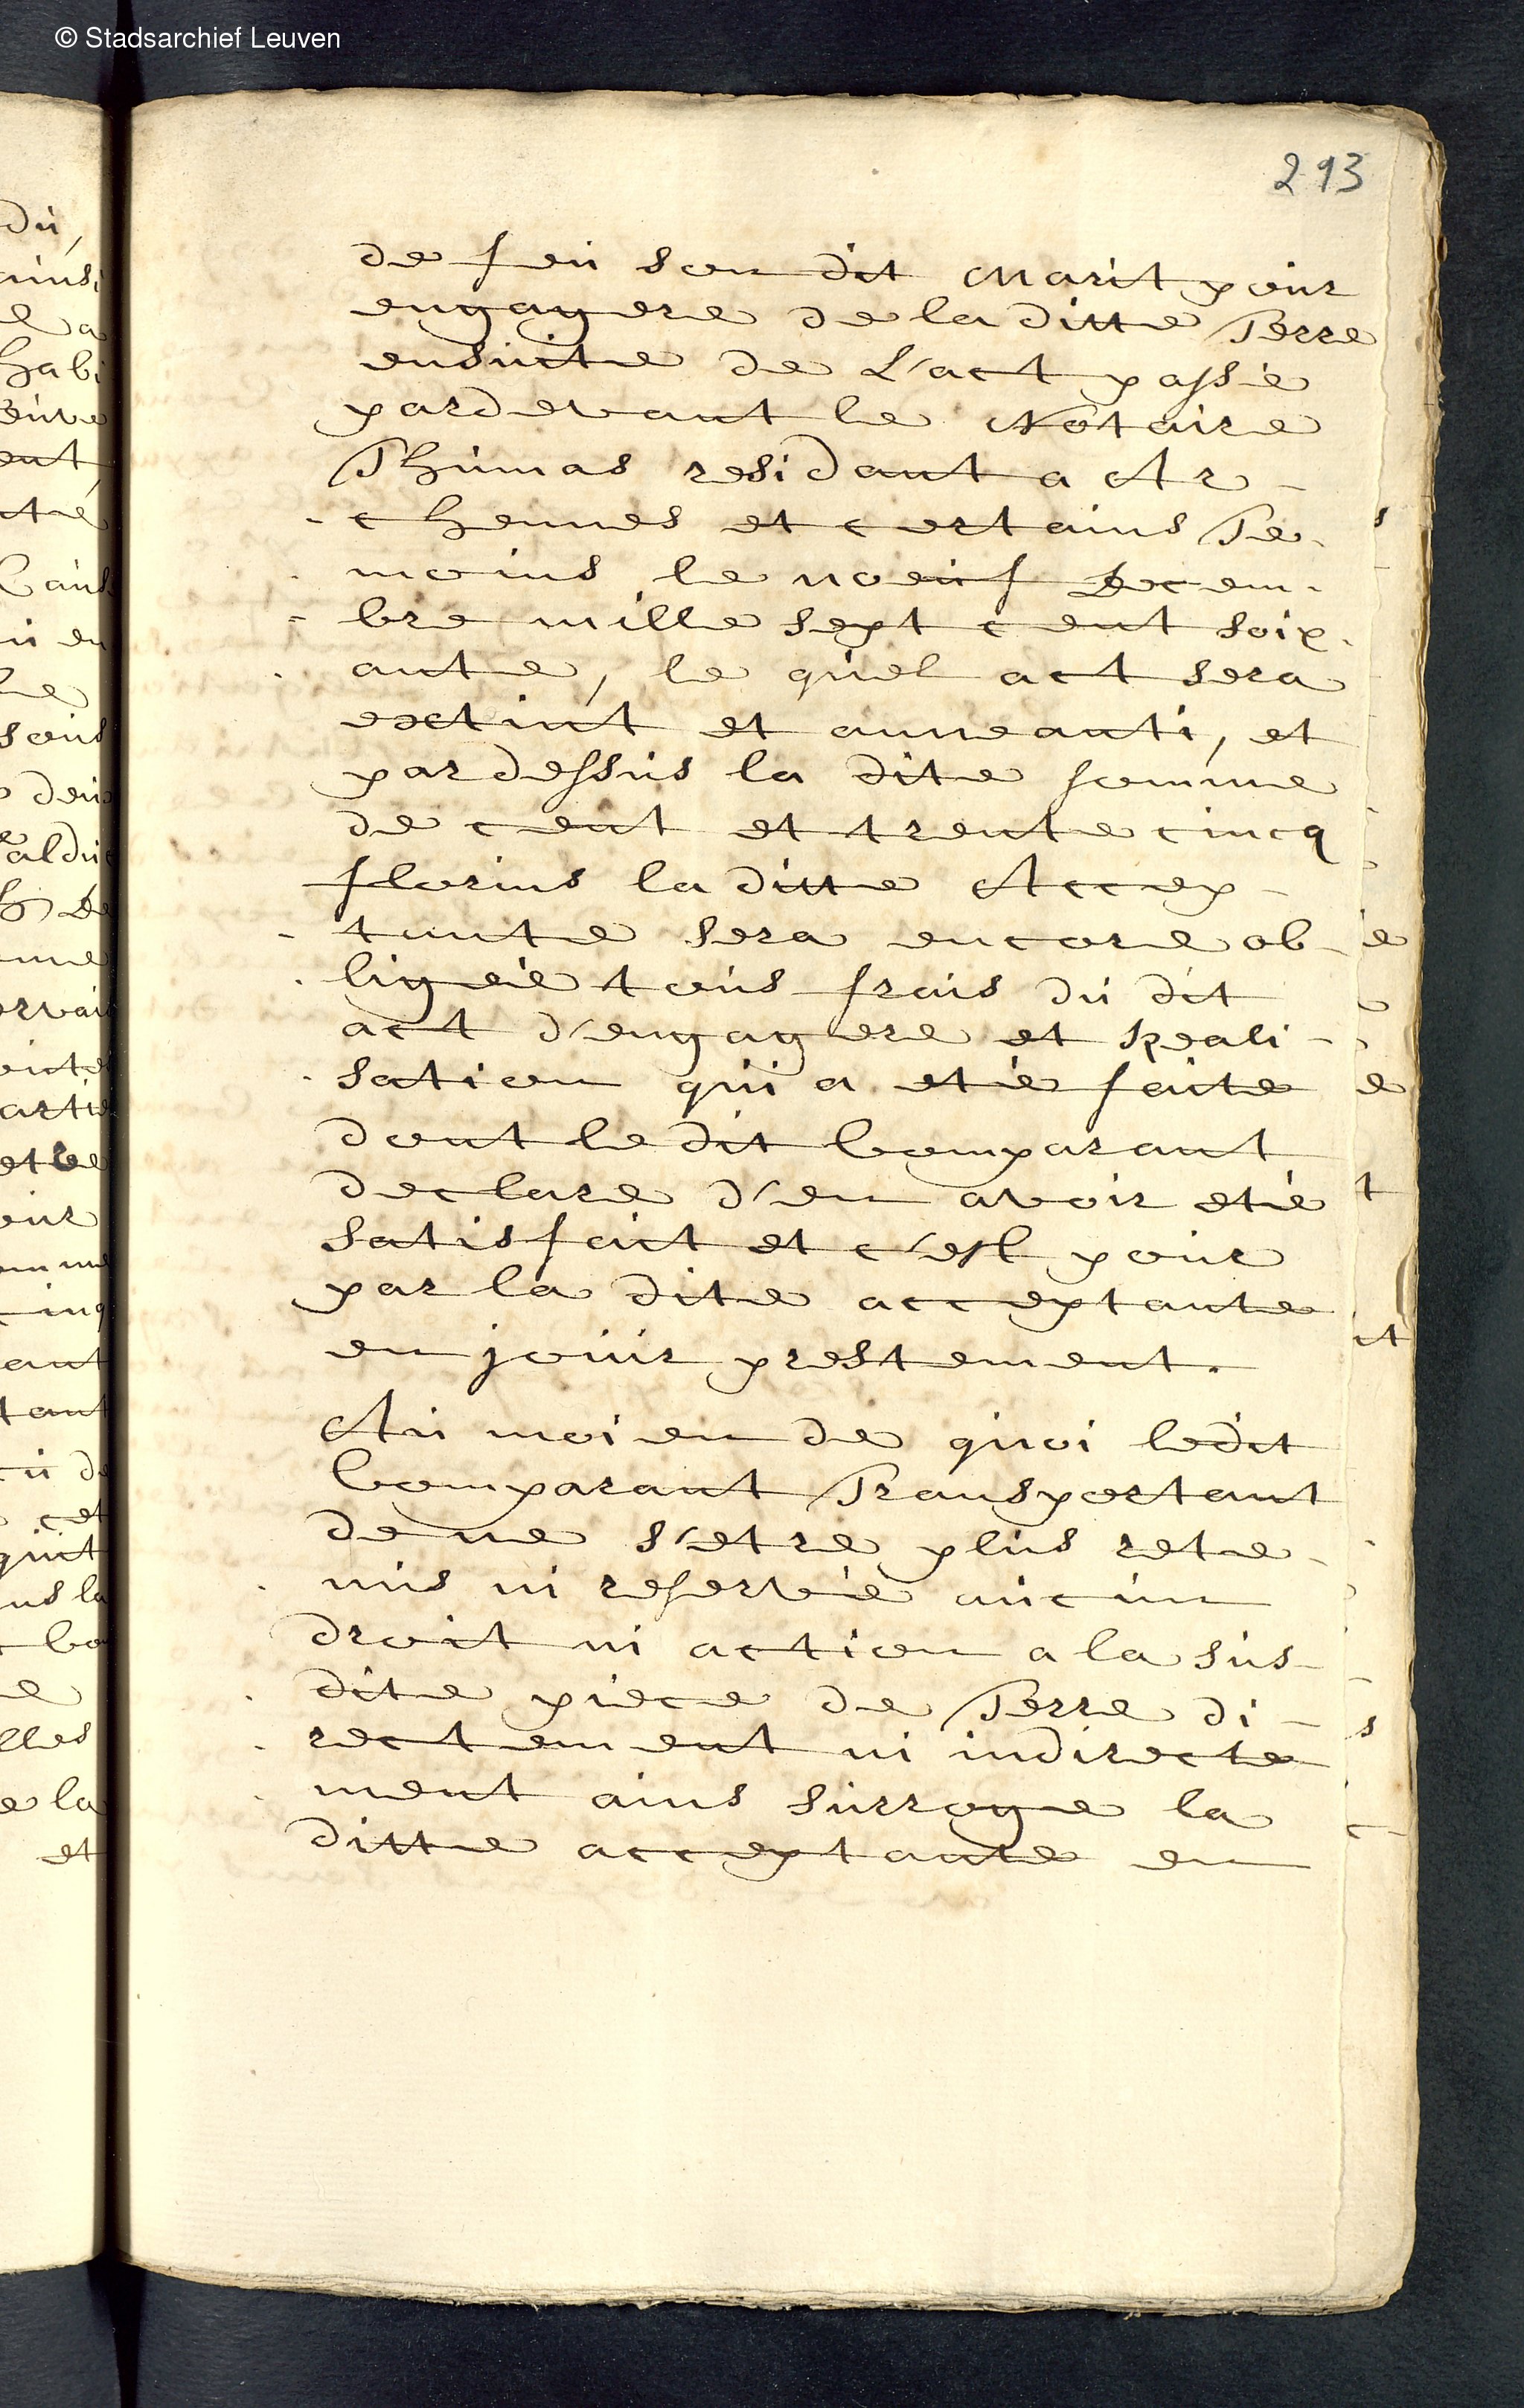 © Stadsarchief Leuven
293
de feu son dit Marit pour
engagere de la ditte Terre
ensuite de L'act passé
pardevant le Notaire
Thumas residant a Ar-
-chennes et certains Te-
moins le noeuf Decem-
-bre mille sept cent soix-
ante, le quel act sera
extint et anneanti, et
pardessus la dite somme
de cent et trente cincq
florins la ditte Accep-
-tante sera encore ob-
ligeé tous frais du dit
act d'engagere et Reali-
-sation qui a eté faite
dont le dit Comparant
declare d'en avoir eté
satisfait et c'est pour
par la dite acceptante
en jouir prestement.
Au moien de quoi ledit
Comparant Transportant
de ne s'etre plus rete-
nus ni reservé aucun
droit ni action a la sus-
dite piece de Terre di-
rectement ni indirecte
ment ains surroge la
ditte acceptante en